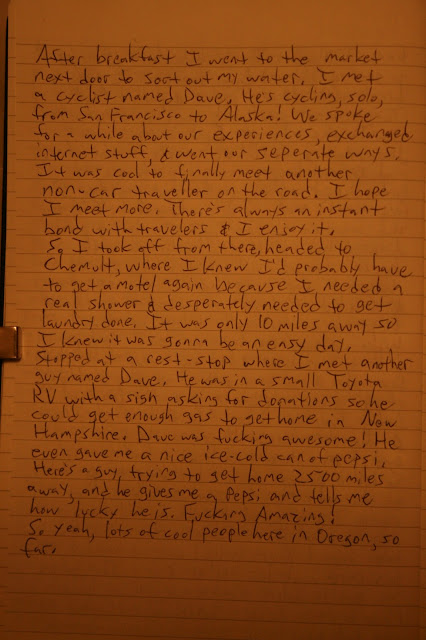 After breakfast I went to the market
next door to sort out my water. I met
a cyclist named Dave. He's cycling, solo,
from San Francisco to Alaska! We spoke
for a while about our experiences, exchanged
internet stuff, & went our seperate ways.
It was cool to finally meet another
non-car traveller on the road. I hope
I meet more. There's always an instant
bond with travelers & I enjoy it.
So I took off from there, headed to
Chemult, where I knew I'd probably have
to get a motel again because I needed a
real shower & desperately needed to get
laundry done. It was only 10 miles away so
I knew it was gonna be an easy day.
Stopped at a rest-stop where I met another
guy named Dave. He was in a small Toyota
RV with a sign asking for donations so he
could get enough gas to get home in New
Hampshire. Dave was fucking awesome! He
even gave me a nice ice-cold can of pepsi.
Here's a guy, trying to get home 2500 miles
away, and he gives me a Pepsi and tells me
how lucky he is. Fucking Amazing!
So yeah, lots of cool people here in Oregon, so
far.